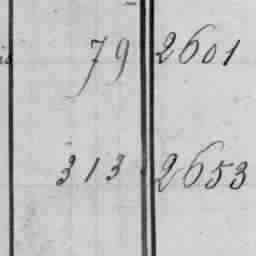 79 2601
313 2653